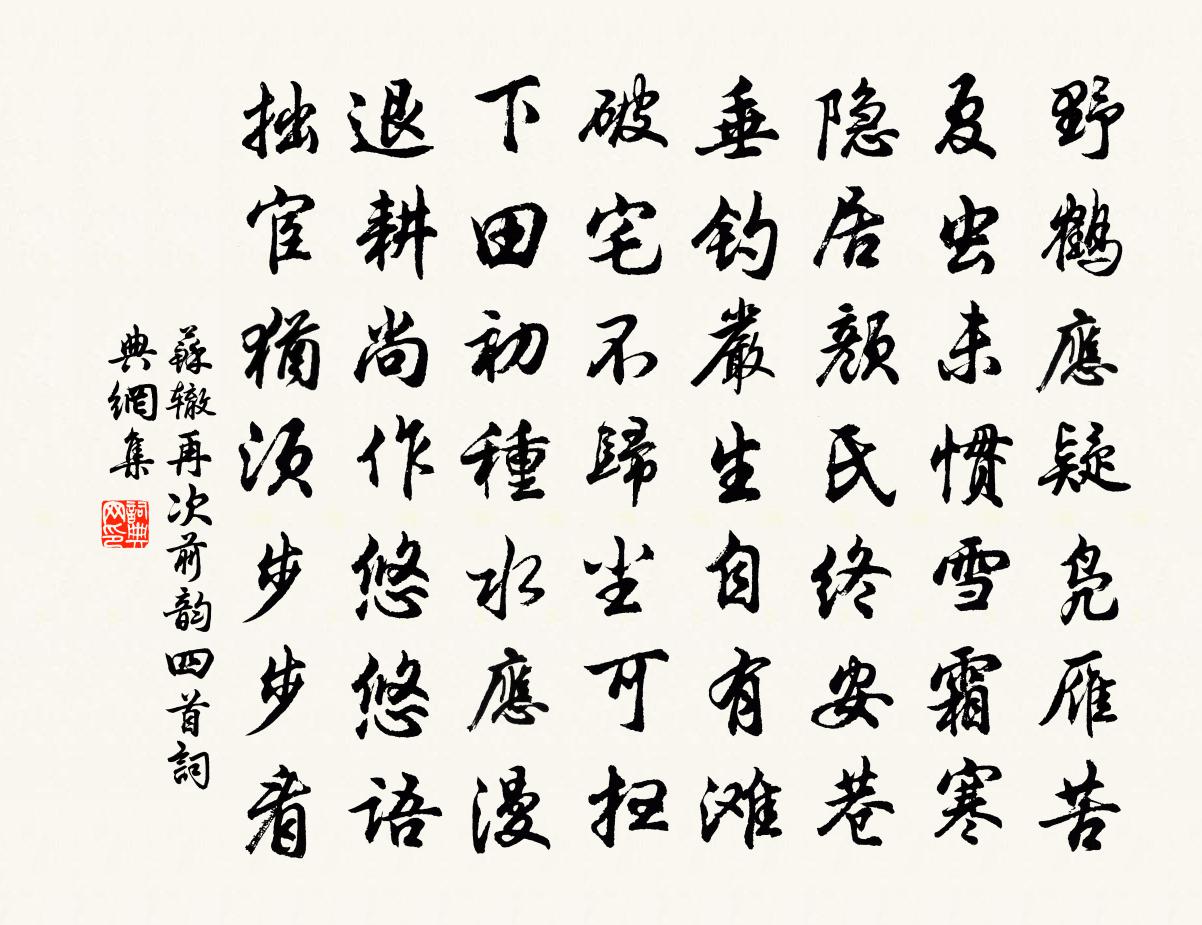 野鶴應疑凫雁苦
夏虫未慣雪霜寒
隐居顏氏终安巷
垂钓嚴生自有滩
破宅不歸尘可扫
下田初種水應漫
退耕尚作悠悠語
拙宦猶须步步看
蘇辙再次前韵四首詞
典網集
詞典网印